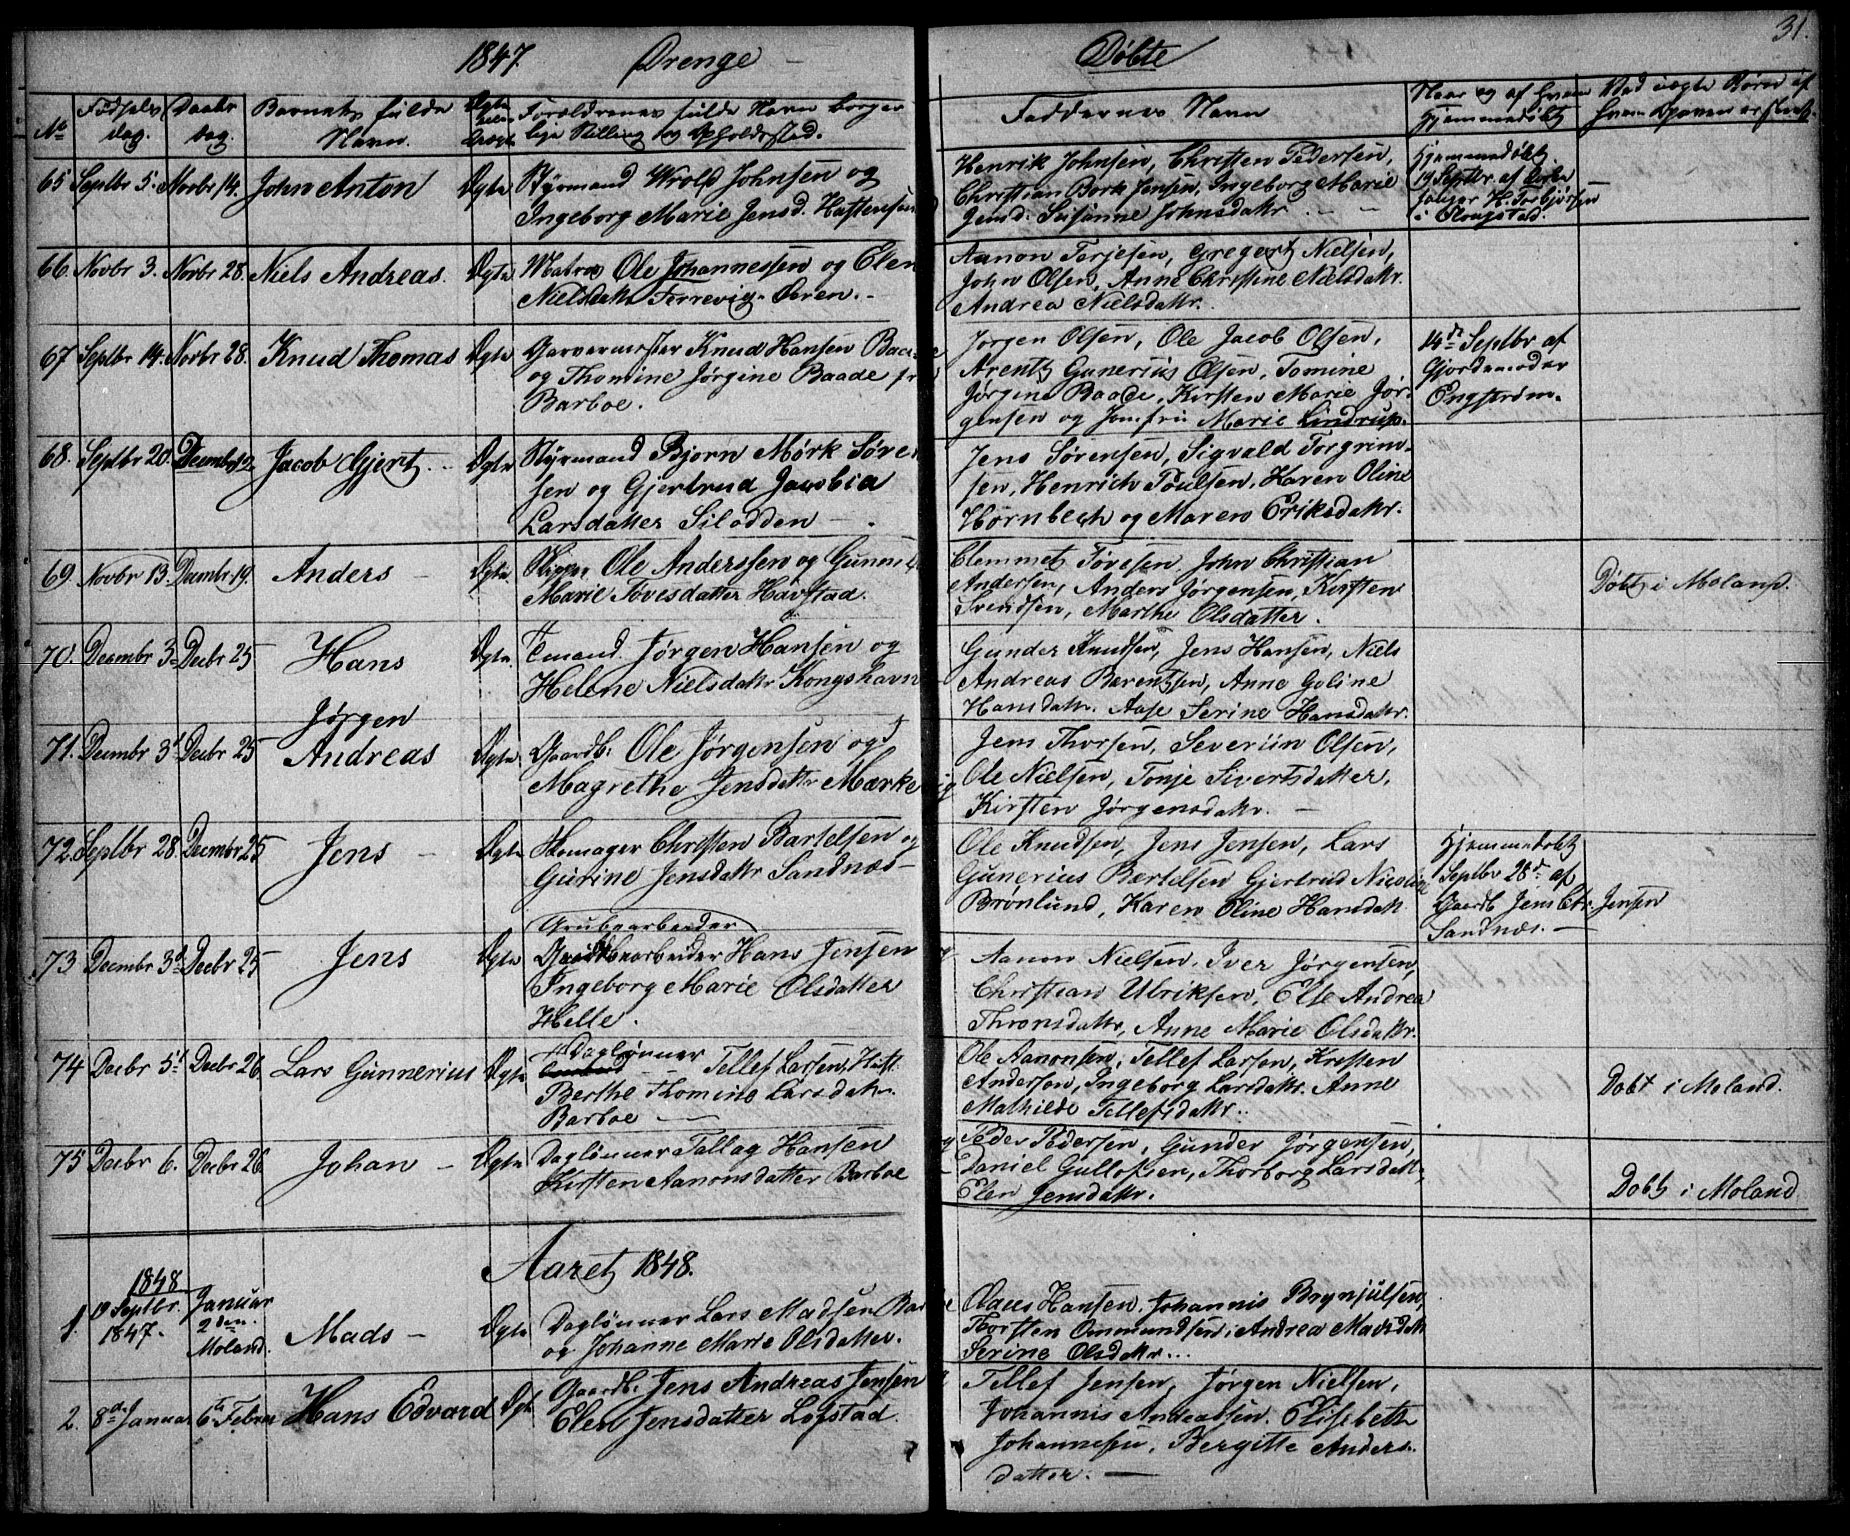 31.
1847. Drenge Döbte
No Fødsels dag. Daabs dag. Barnets fulde Navn. Ægte eller Uægte Forældrenes fulde Navn borgerlige Stilling og Opholdssted. Faddernes Navn Naar og af hvem Hjemmedöbt
65 Septbr 5. Novbr 14. John Anton Ægte Styrmand Wrold Johnsen og
Ingeborg Marie Jensd.
Henrik Johnsen, Christen Pedersen,
Christian Bork Jensen, Ingeborg Marie
Jensd. Susanne Johnsdattr.
Hjemmedöbt
19 Septbr. af
H. Torbjörsen
i
66. Novbr 3. Novbr 28. Niels Andreas. Ægte Matros Ole Johannessen og Elen
Nielsdattr Ferrevig-Øeren.
Aanon Terjesen, Gregert Nielsen,
John Olsen, Anne Christine Nielsdattr.
Andrea Nielsdattr.
67 Septbr 14. Novbr 28. Knud Thomas Ægte Garvermester Knud Hansen
og Thomine Jörgine Baade
Barboe.
Jörgen Olsen, Ole Jacob Olsen,
Arentz Gunerius Olsen, Tomine
Jörgine Baade, Kirsten Marie Jör-
gensen og Jomfru Marie Lindrup.
14de Septbr af
Gjordemoder
Engström.
68. Septbr 20. Decembr Jacob Gjert. Ægte Styrmand Bjorn Mørk Søren
sen og Gjertrud Jacobia
Larsdatter Silodden
Jens Sørensen, Sigvald Torgrim-
sen, Henrich Poulsen, Karen Oline
Hornbech og Maren Eriksdattr.
69. Novbr 13. Decembr 19. Anders Ægte Ole Anderssen og
Marie Tovesdatter Havstad.
Clemmet Tovesen, John Christian
Andersen, Anders Jørgensen, Kirsten
Svendsen, Marthe Olsdatter.
Döbt i Moland.
70. Decembr 3 Decbr 25 Hans Ægte Tmand. Jørgen Hansen og
Helene Nielsdattr Kongshavn
Gunder Knudsen, Jens Hansen, Niels
Andreas Berentsen, Anne Goline
Hansdattr. Aase Serine Hansdattr.
71. Decembr 3 Decbr 25 Jørgen Andreas Ægte Gaardb. Ole Jørgensen og
Magrethe Jensdattr
Jens Thorsen, Severiin Olsen,
Ole Nielsen, Tonje Sivertsdatter,
Kirsten Jørgensdattr.
72. Septbr 28. Decembr 25 Jens Ægte Skomager Christen Bartelsen og
Gurine Jensdattr Sandnæs
Ole Knudsen, Jens Jensen, Lars
Gunerius Bertelsen Gjertrud
Brønlund, Karen Oline Hansdatt
Hjemmedobt
Septbr 28de af
Gaardb Jens Chr. Jensen
Sandnæs.
73 Decembr 3 Decbr 25 Jens Ægte Grubearbeider
Hans Jensen
Ingeborg Marie Olsdatter
Helle.
Aanon Nielsen, Iver Jörgensen,
Christian Ulriksen, Else Andrea
Thronsdattr, Anne Marie Olsdattr.
74 Decbr 5 Decbr 26 Lars Gunnerius Ægte Daglönner
Tellef Larsen,
Berthe Thomine Larsdattr.
Barboe
Ole Aanonsen, Tellef Larsen, Kresten
Andersen, Ingeborg Larsdattr. Anne
Mathilde Tellefsdattr.
Dobt i Moland.
75 Decbr 6. Decbr 26. Johan Ægte Daglönner Tallag Hansen
Kirsten Aanonsdatter Barboe
Peder Pedersen, Gunder Jørgensen,
Daniel Gullofsen, Thorborg Larsdatt,
Elen Jensdattr.
Dobt i Moland
Aaret 1848.
1848
1. 19 Septbr. 1847. Januar 2den. Moland. Mads Ægte Daglönner Lars Madsen
og Johanne Marie Olsdatter.
Claus Hansen, Johannis Brynjulsen,
Thorsten Ommundsen, Andrea Madsdatt
Serine Olsdattr.
2. 8de Januar 6te Hans Edvard Ægt Gaardb. Jens Andreas Jensen
Elen Jensdatter Lofstad.
Tellef Jensen, Jørgen Nielsen,
Johannis Andreassen, Elisebeth
Johannesen, Bergitte Anders
datter.